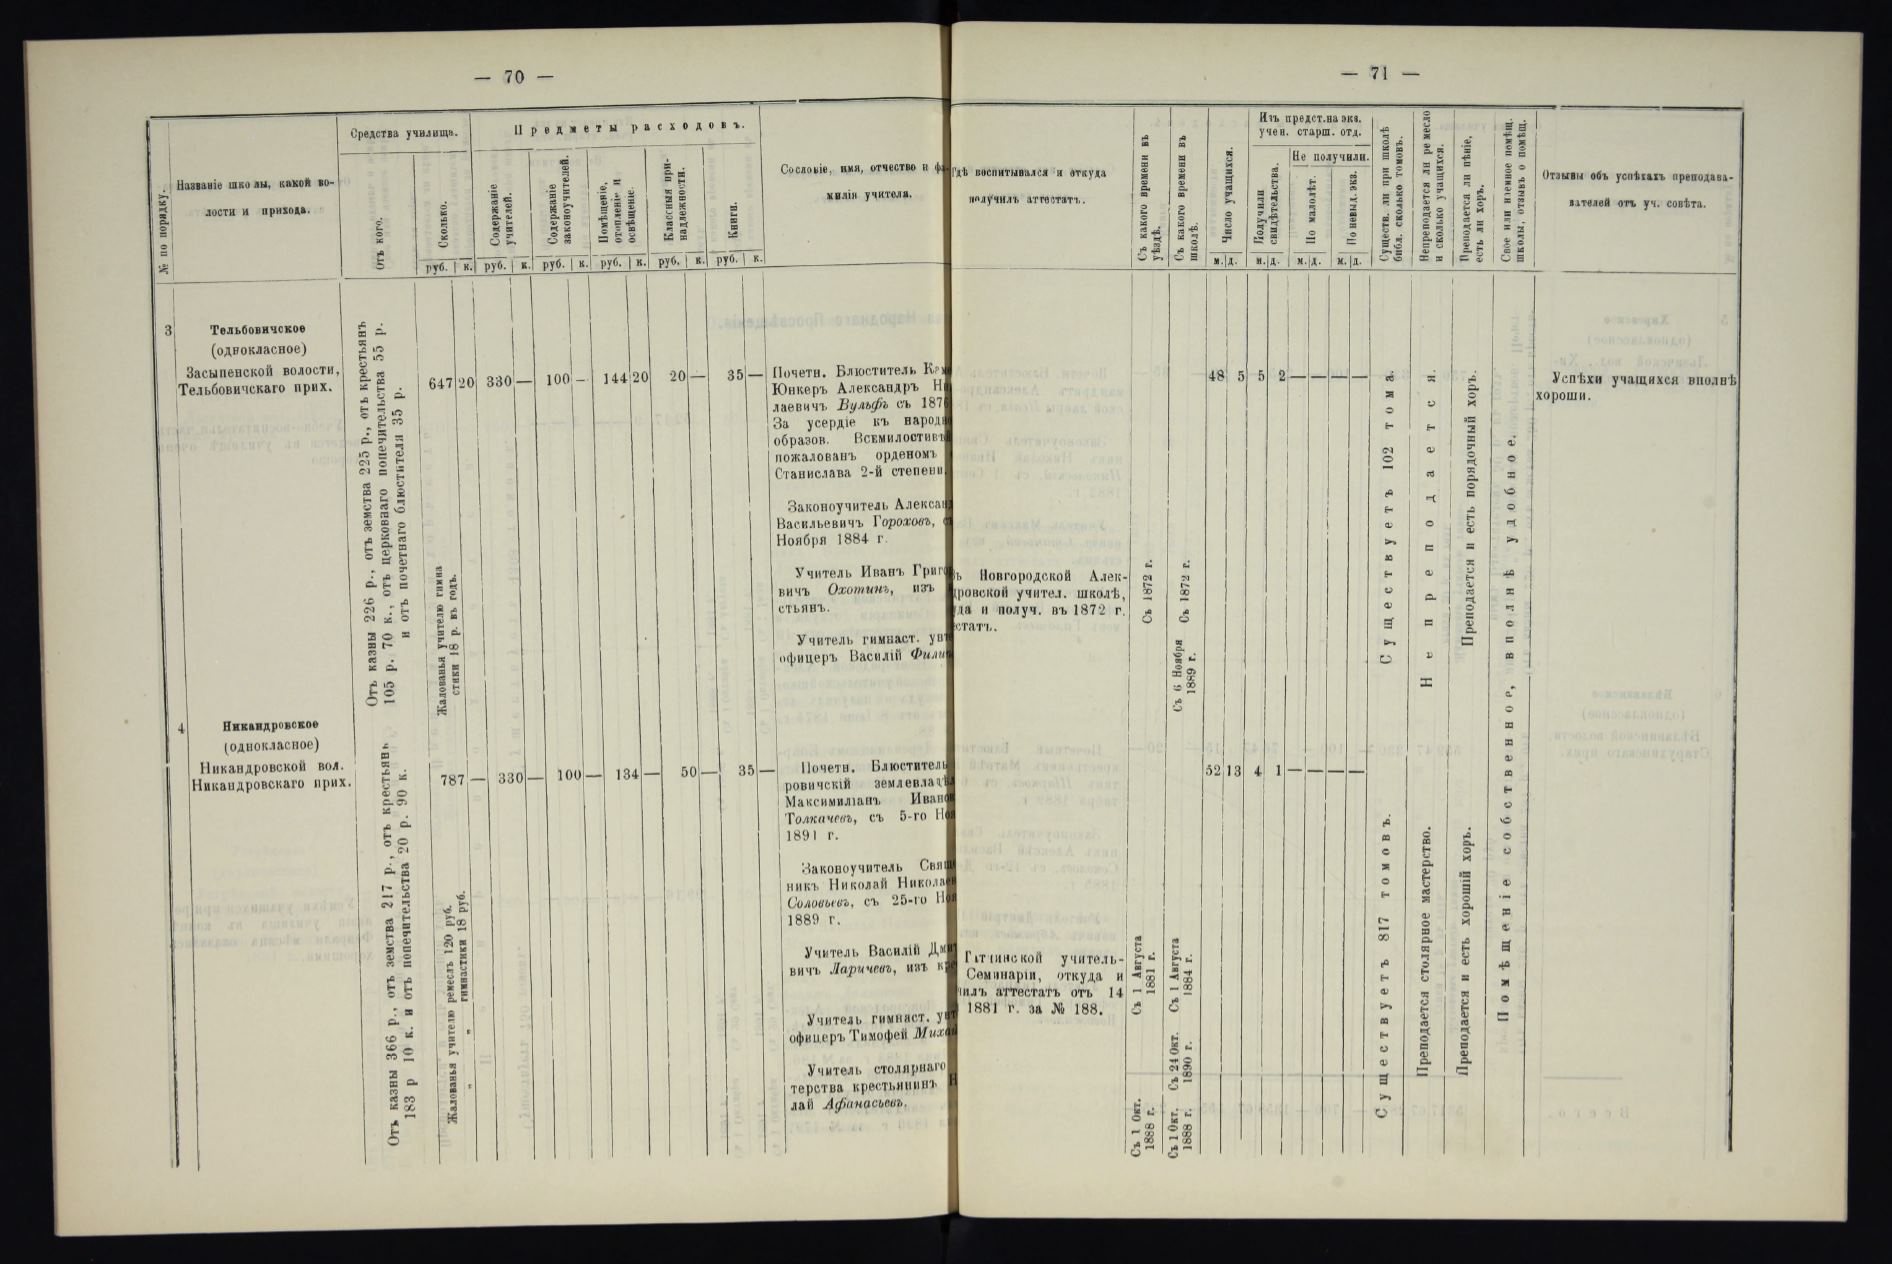 — 70 —
№ по порядку.
Названіе школы, какой во-
лости и прихода.
Средства училища.
Отъ кого.
Сколько.
руб. к.
Предметы расходовъ.
Содержаніе
учителей.
руб. к.
Содержаніе
законоучителей.
руб. к.
Помѣщеніе,
отопленіе и
освѣщеніе.
руб. к.
Классныя при-
надлежности.
руб. к.
Книги.
руб. к.
Сословіе, имя, отчество и фа-
милія учителя.
3
Тельбовичское
(однокласное)
Засыпенской волости,
Тельбовичскаго прих.
Отъ казны 226 р., отъ земства 225 р., отъ крестьянъ
105 р. 70 к., отъ церковнаго попечительства 55 р.
и отъ почетнаго блюстителя 35 р.
647 20 330 — 100 — 144 20 20 — 35 —
Жалованья учителю гимна
стики 18 р. въ годъ.
Почетн. Блюститель
Юнкеръ Александръ
лаевичъ Вульфъ съ 1876
За усердіе къ
образов.
пожалованъ орденомъ
Станислава 2-й степени.
Законоучитель
Васильевичъ Гороховъ,
Ноября 1884 г.
Учитель Иванъ
вичъ Охотинъ, изъ
стьянъ.
Учитель гимнаст.
офицеръ Василій
4
Никандровское
(однокласное)
Никандровской вол.
Никандровскаго прих.
Отъ казны 366 р., отъ земства 217 р., отъ крестьянъ
183 р 10 к. и отъ попечительства 20 р. 90 к.
787 — 330 — 100 — 134 — 50 — 35 —
Жалованья учителю ремеслъ 120 руб.
„ „ гимнастики 18 руб.
Почетн. Блюститель
ровичскій
Максимиліанъ
Толкачевъ, съ 5-го
1891 г.
Законоучитель
никъ Николай
Соловьевъ, съ 25-го
1889 г.
Учитель Василій
вичъ Ларичевъ, изъ
Учитель гимнаст.
офицеръ Тимофей
Учитель столярнаго
терства крестьянинъ
лай Афанасьевъ.
— 71 —
Гдѣ воспитывался и откуда
получилъ аттестатъ.
Съ какого времени въ
уѣздѣ.
Съ какого времени въ
школѣ.
Число учащихся.
м. д.
Изъ предст. на экз.
учен. старш. отд.
Получили
свидѣтельства.
м. д.
Не получили.
По малолѣт.
м. д.
По невыд. экз.
м. д.
Существ. ли при школѣ
библ. сколько томовъ.
Непреподается ли ремесло
и сколько учащихся.
Преподается ли пѣніе,
есть ли хоръ.
Свое или наемное помѣщ.
школы, отзывъ о помѣщ.
Отзывы объ успѣхахъ преподава-
вателей отъ уч. совѣта.
Новгородской Алек-
дровской учител. школѣ,
и получ. въ 1872 г.
Съ 1872 г.
Съ 1872 г.
Съ 6 Ноября
1889 г.
48 5 5 2 — — — —
Существуетъ 102 тома.
Не преподается.
Преподается и есть порядочный хоръ.
Помѣщеніе собственное, вполнѣ удобное.
Успѣхи учащихся вполнѣ
хороши.
учитель-
Семинаріи, откуда и
аттестатъ отъ 14
1881 г. за № 188.
Съ 1 Августа
1881 г.
Съ 1 Августа
1884 г.
Съ 24 Окт.
1890 г.
Съ 1 Окт.
1888 г.
Съ 1 Окт.
1888 г.
52 13 4 1 — — — —
Существуетъ 817 томовъ.
Преподается столярное мастерство.
Преподается и есть хорошій хоръ.